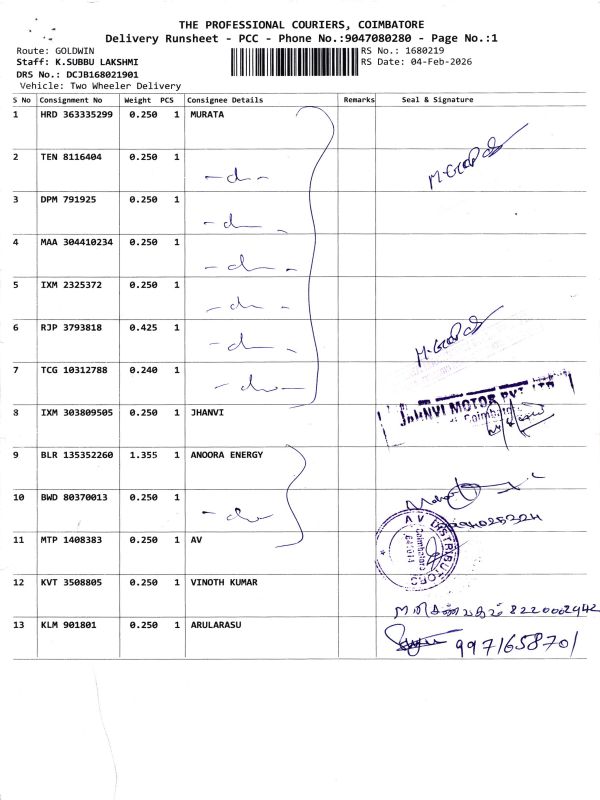 THE PROFESSIONAL COURIERS, COIMBATORE
Delivery Runsheet - PCC - Phone No.:9047080280 - Page No.:1
Route: GOLDWIN RS No.: 1680219
Staff: K.SUBBU LAKSHMI RS Date: 04-Feb-2026
DRS No.: DCJB168021901
Vehicle: Two Wheeler Delivery
S No Consignment No Weight PCS Consignee Details Remarks Seal & Signature
1 HRD 363335299 0.250 1 MURATA
2 TEN 8116404 0.250 1
3 DPM 791925 0.250 1
4 MAA 304410234 0.250 1
5 IXM 2325372 0.250 1
6 RJP 3793818 0.425 1
7 TCG 10312788 0.240 1
8 IXM 303809505 0.250 1 JHANVI
JHANVI MOTOR PVT LTD
9 BLR 135352260 1.355 1 ANOORA ENERGY
10 BWD 80370013 0.250 1
11 MTP 1408383 0.250 1 AV
AV DISTRIBUTORS
12 KVT 3508805 0.250 1 VINOTH KUMAR
8220002942
13 KLM 901801 0.250 1 ARULARASU
9971658701